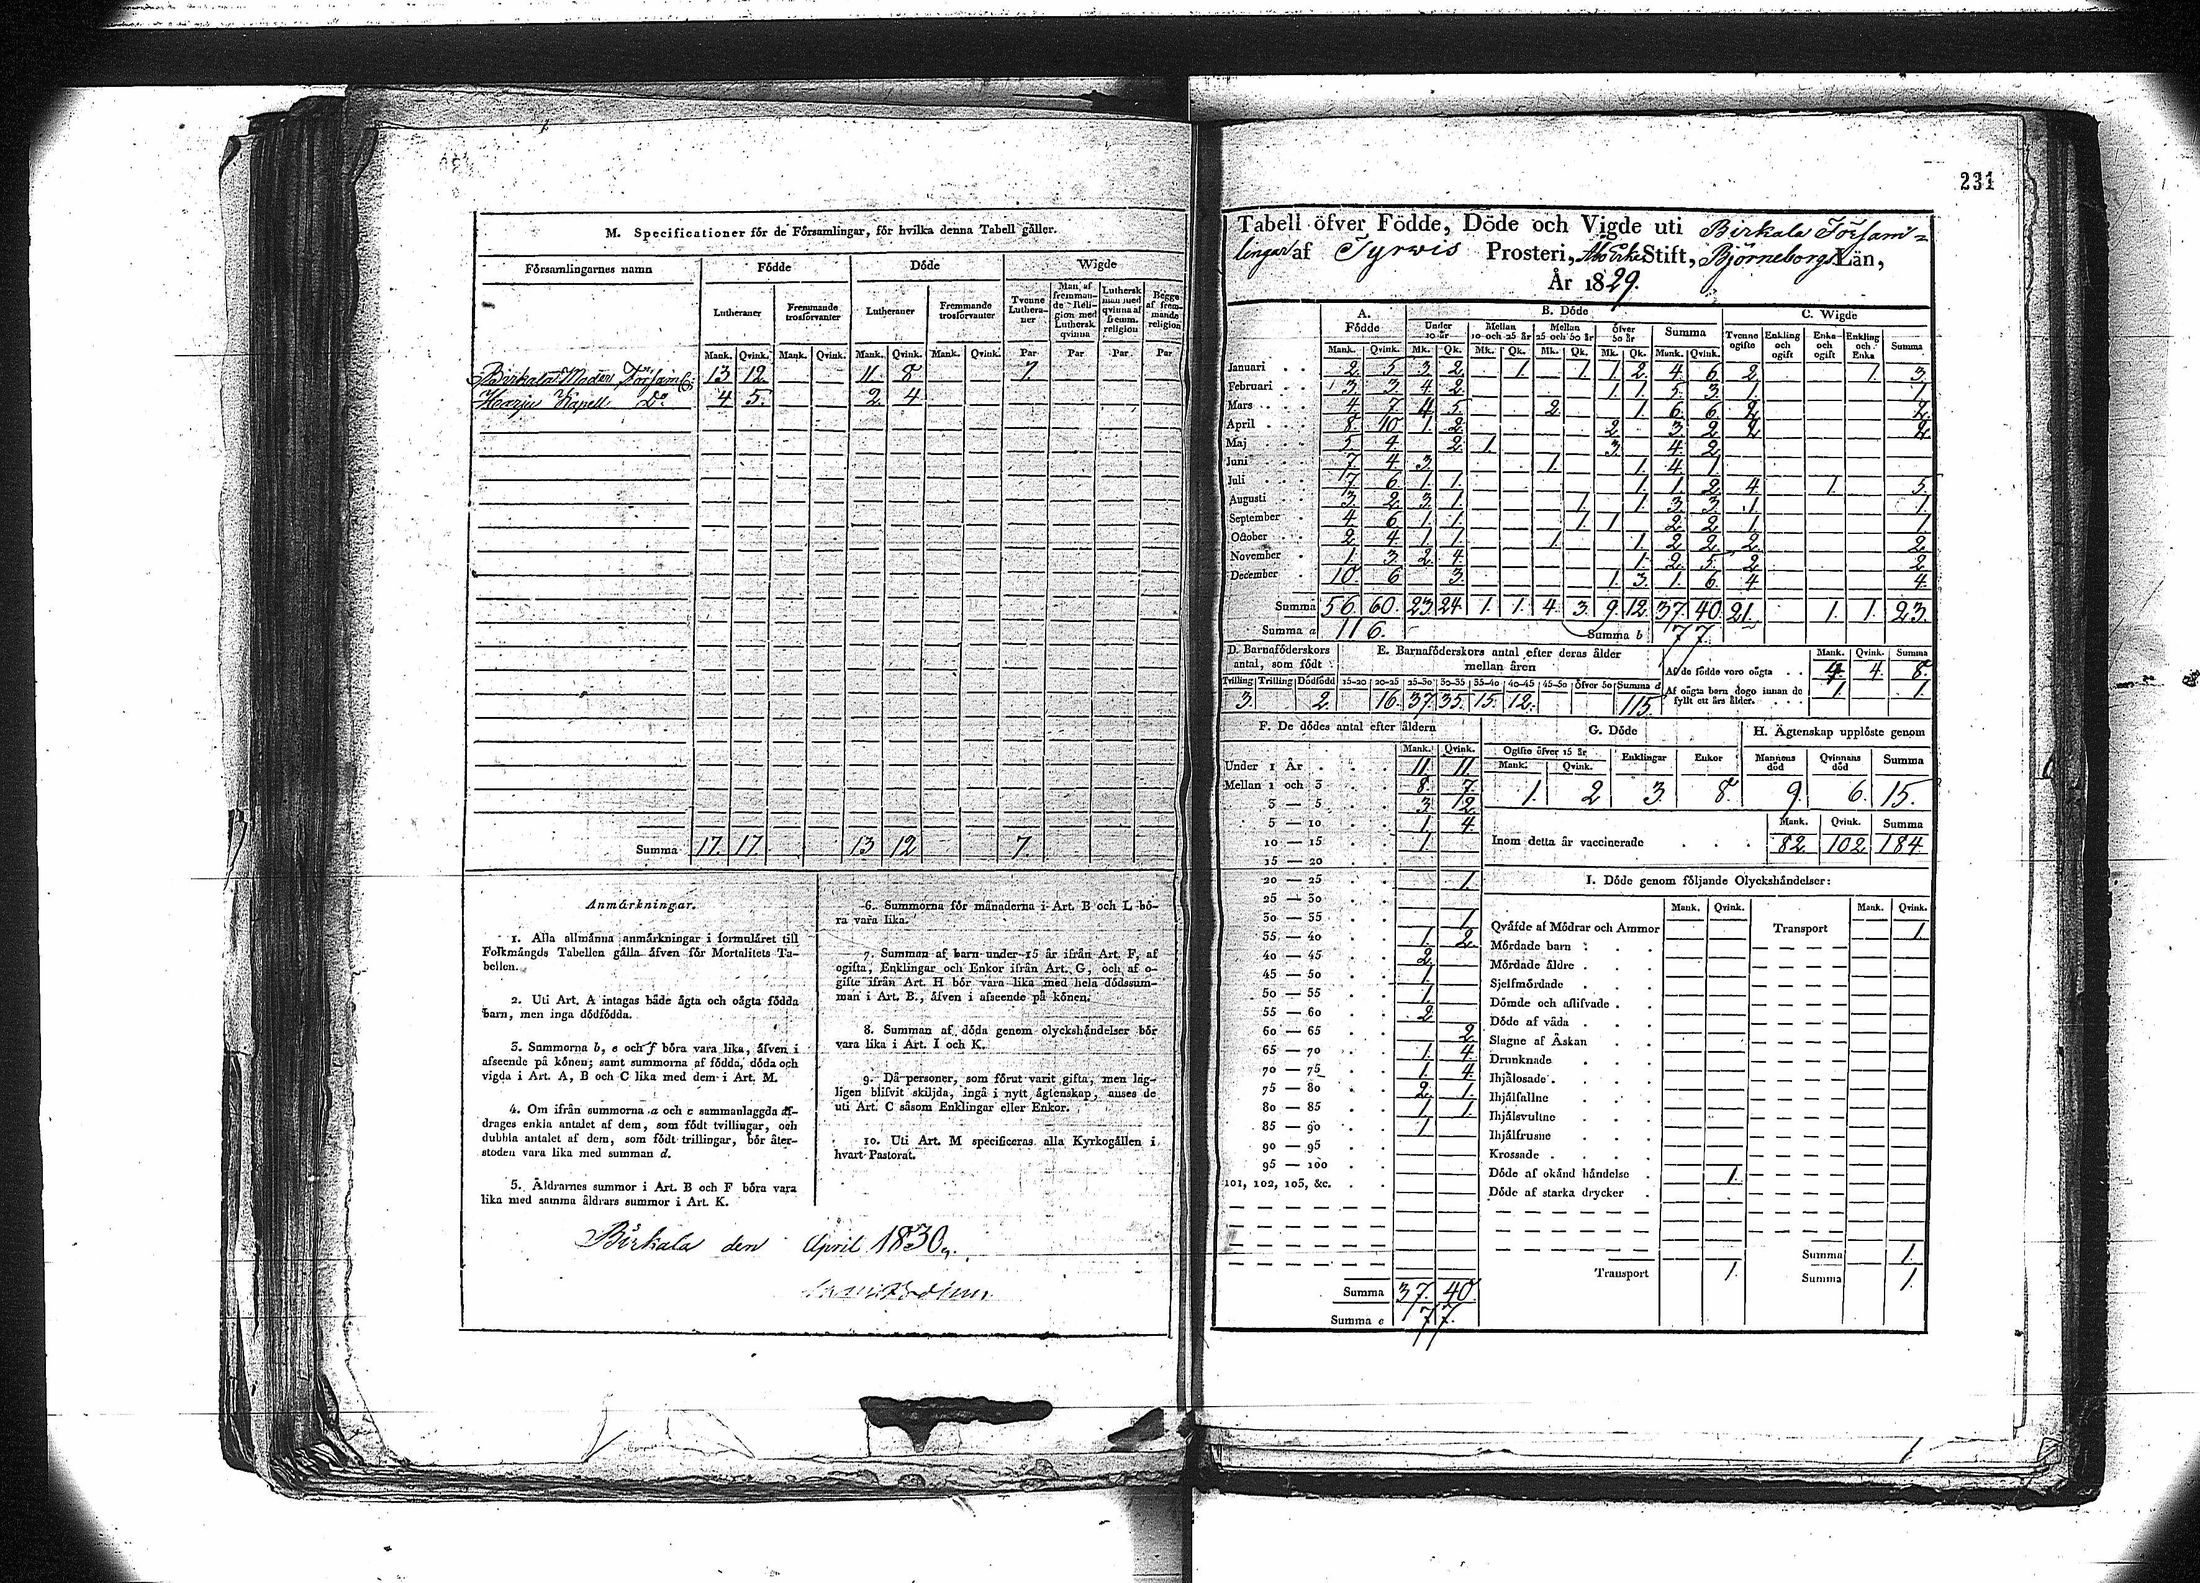 M. Specificationer för de Församlingar, för hvilka denna Tabell gäller.
Församlingarnes namn | Födde | Döde | Wigde
Lutheraner | Fremmande trosförvanter | Lutheraner | Fremmande trosförvanter | Tvenne Lutheraner | Man af fremmande Religion med Luthersk qvinna | Luthersk man med qvinna af fremm. religion | Begge af fremmande religion
Mank. | Qvink. | Mank. | Qvink. | Mank. | Qvink. | Mank. | Qvink. | Par | Par | Par | Par
Birkala Moder Församl. | 13 | 12. | | | 11. | 8 | | | 7.
Harju Kapell Do | 4 | 5. | | | 2. | 4
Summa | 17. | 17. | | | 13 | 12 | | | 7.
Anmärkningar.
1. Alla allmänna anmärkningar i formuläret till
Folkmängds Tabellen gälla äfven för Mortalitets Ta-
bellen.
2. Uti Art. A intagas både ägta och oägta födda
barn, men inga dödfödda.
3. Summorna b, e och f böra vara lika, äfven i
afseende på könen; samt summorna af födda, döda och
vigda i Art. A, B och C lika med dem i Art. M.
4. Om ifrån summorna a och c sammanlaggda af-
drages enkla antalet af dem, som födt tvillingar, och
dubbla antalet af dem, som födt trillingar, bör åter-
stoden vara lika med summan d.
5. Åldrarnes summor i Art. B och F böra vara
lika med samma åldrars summor i Art. K.
6. Summorna för månaderna i Art. B och L bö-
ra vara lika.
7. Summan af barn under 15 år ifrån Art. F, af
ogifta, Enklingar och Enkor ifrån Art. G, och af o-
gifte ifrån Art. H bör vara lika med hela dödssum-
man i Art. B., äfven i afseende på könen.
8. Summan af döda genom olyckshändelser bör
vara lika i Art. I och K.
9. Då personer, som förut varit gifta, men lag-
ligen blifvit skiljda, ingå i nytt ägtenskap, anses de
uti Art. C såsom Enklingar eller Enkor.
10. Uti Art. M specificeras alla Kyrkogällen i
hvart Pastorat.
Birkala den April 1830
231
Tabell öfver Födde, Döde och Vigde uti Birkala Försam-
lingar af Tyrvis Prosteri, Stift, Björneborgs Län,
År 1829.
A. Födde | B. Döde | C. Wigde
Under 10 år | Mellan 10 och 25 år | Mellan 25 och 50 år | Öfver 50 år | Summa | Tvenne ogifte | Enkling och ogift | Enka och ogift | Enkling och Enka | Summa
Mank. | Qvink. | Mk. | Qk. | Mk. | Qk. | Mk. | Qk. | Mk. | Qk. | Mank. | Qvink.
Januari | 2 | 5 | 3 | 2 | | 1. | | 1. | 1. | 2. | 4 | 6. | 2 | | | 1. | 3.
Februari | 3 | 3 | 4 | 2 | | | | | 1. | 1. | 5. | 3. | 1. | | | | 1.
Mars | 4 | 7 | 4 | 5 | | | 2. | | | 1. | 6. | 6. | 2 | | | | 2.
April | 8. | 10 | 1. | 2 | | | | | 2. | | 3. | 2 | 2 | | | | 2.
Maj | 5 | 4. | | 2. | 1. | | | | 3. | | 4. | 2.
Juni | 7 | 4 | 3. | | | | 1. | | | 1. | 4 | 1.
Juli | 7 | 6 | 1. | 1. | | | | | | 1. | 1. | 2. | 4 | | 1. | | 5.
Augusti | 3 | 2 | 3. | 1. | | | | 1. | | 1. | 3. | 3. | 1. | | | | 1.
September | 4 | 6 | 1. | 1. | | | | 1. | 1. | | 2. | 2. | 1. | | | | 1.
October | 2 | 4. | 1. | 1. | | | 1. | | | 1. | 2. | 2. | 2. | | | | 2.
November | 1. | 3. | 2. | 4 | | | | | | 1. | 2. | 5. | 2 | | | | 2.
December | 10. | 6 | | 3. | | | | | 1. | 3. | 1. | 6. | 4 | | | | 4.
Summa | 56. | 60. | 23 | 24. | 1. | 1. | 4. | 3. | 9. | 12. | 37. | 40. | 21. | | 1. | 1. | 23.
Summa a | 116. | Summa b | 77.
D. Barnaföderskors antal, som födt | E. Barnaföderskors antal efter deras ålder mellan åren
Tvilling | Trilling | Dödfödd | 15-20 | 20-25 | 25-30 | 30-35 | 35-40 | 40-45 | 45-50 | öfver 50 | Summa d
3. | | 2. | | 16. | 37. | 35. | 15. | 12. | | | 115.
Mank. | Qvink. | Summa
Af de födde voro oägta | 4. | 4. | 8.
Af oägta barn dogo innan de fyllt ett års ålder. | 1. | | 1.
F. De dödes antal efter åldern
Mank. | Qvink.
Under 1 År | 11 | 11
Mellan 1 och 3 | 8. | 7.
3 — 5 | 3 | 2
5 — 10 | 1. | 4
10 — 15 | 1.
15 — 20
20 — 25 | | 1.
25 — 30
30 — 35 | | 1.
35 — 40 | 1. | 2.
40 — 45 | 2.
45 — 50 | 1.
50 — 55 | 1.
55 — 60 | 2
60 — 65 | | 2.
65 — 70 | 1. | 4
70 — 75 | 1. | 4.
75 — 80 | 2. | 1.
80 — 85 | 1. | 1.
85 — 90 | 1
90 — 95
95 — 100
101, 102, 103, &c.
Summa | 37. | 40.
Summa e | 77.
G. Döde
Ogifte öfver 15 år | Enklingar | Enkor
Mank. | Qvink.
1. | 2 | 3. | 8.
H. Ägtenskap upplöste genom
Mannens död | Qvinnans död | Summa
9. | 6. | 15.
Mank. | Qvink. | Summa
Inom detta år vaccinerade | 82. | 102. | 184.
I. Döde genom följande Olyckshändelser:
Mank. | Qvink. | | Mank. | Qvink.
Qväfde af Mödrar och Ammor | | | Transport | | 1.
Mördade barn
Mördade äldre
Sjelfmördade
Dömde och aflifvade
Döde af våda
Slagne af Åskan
Drunknade
Ihjälosade
Ihjälfallne
Ihjälsvultne
Ihjälfrusne
Krossade
Döde af okänd händelse | | 1.
Döde af starka drycker
Summa | | 1.
Transport | | 1. | Summa | | 1.